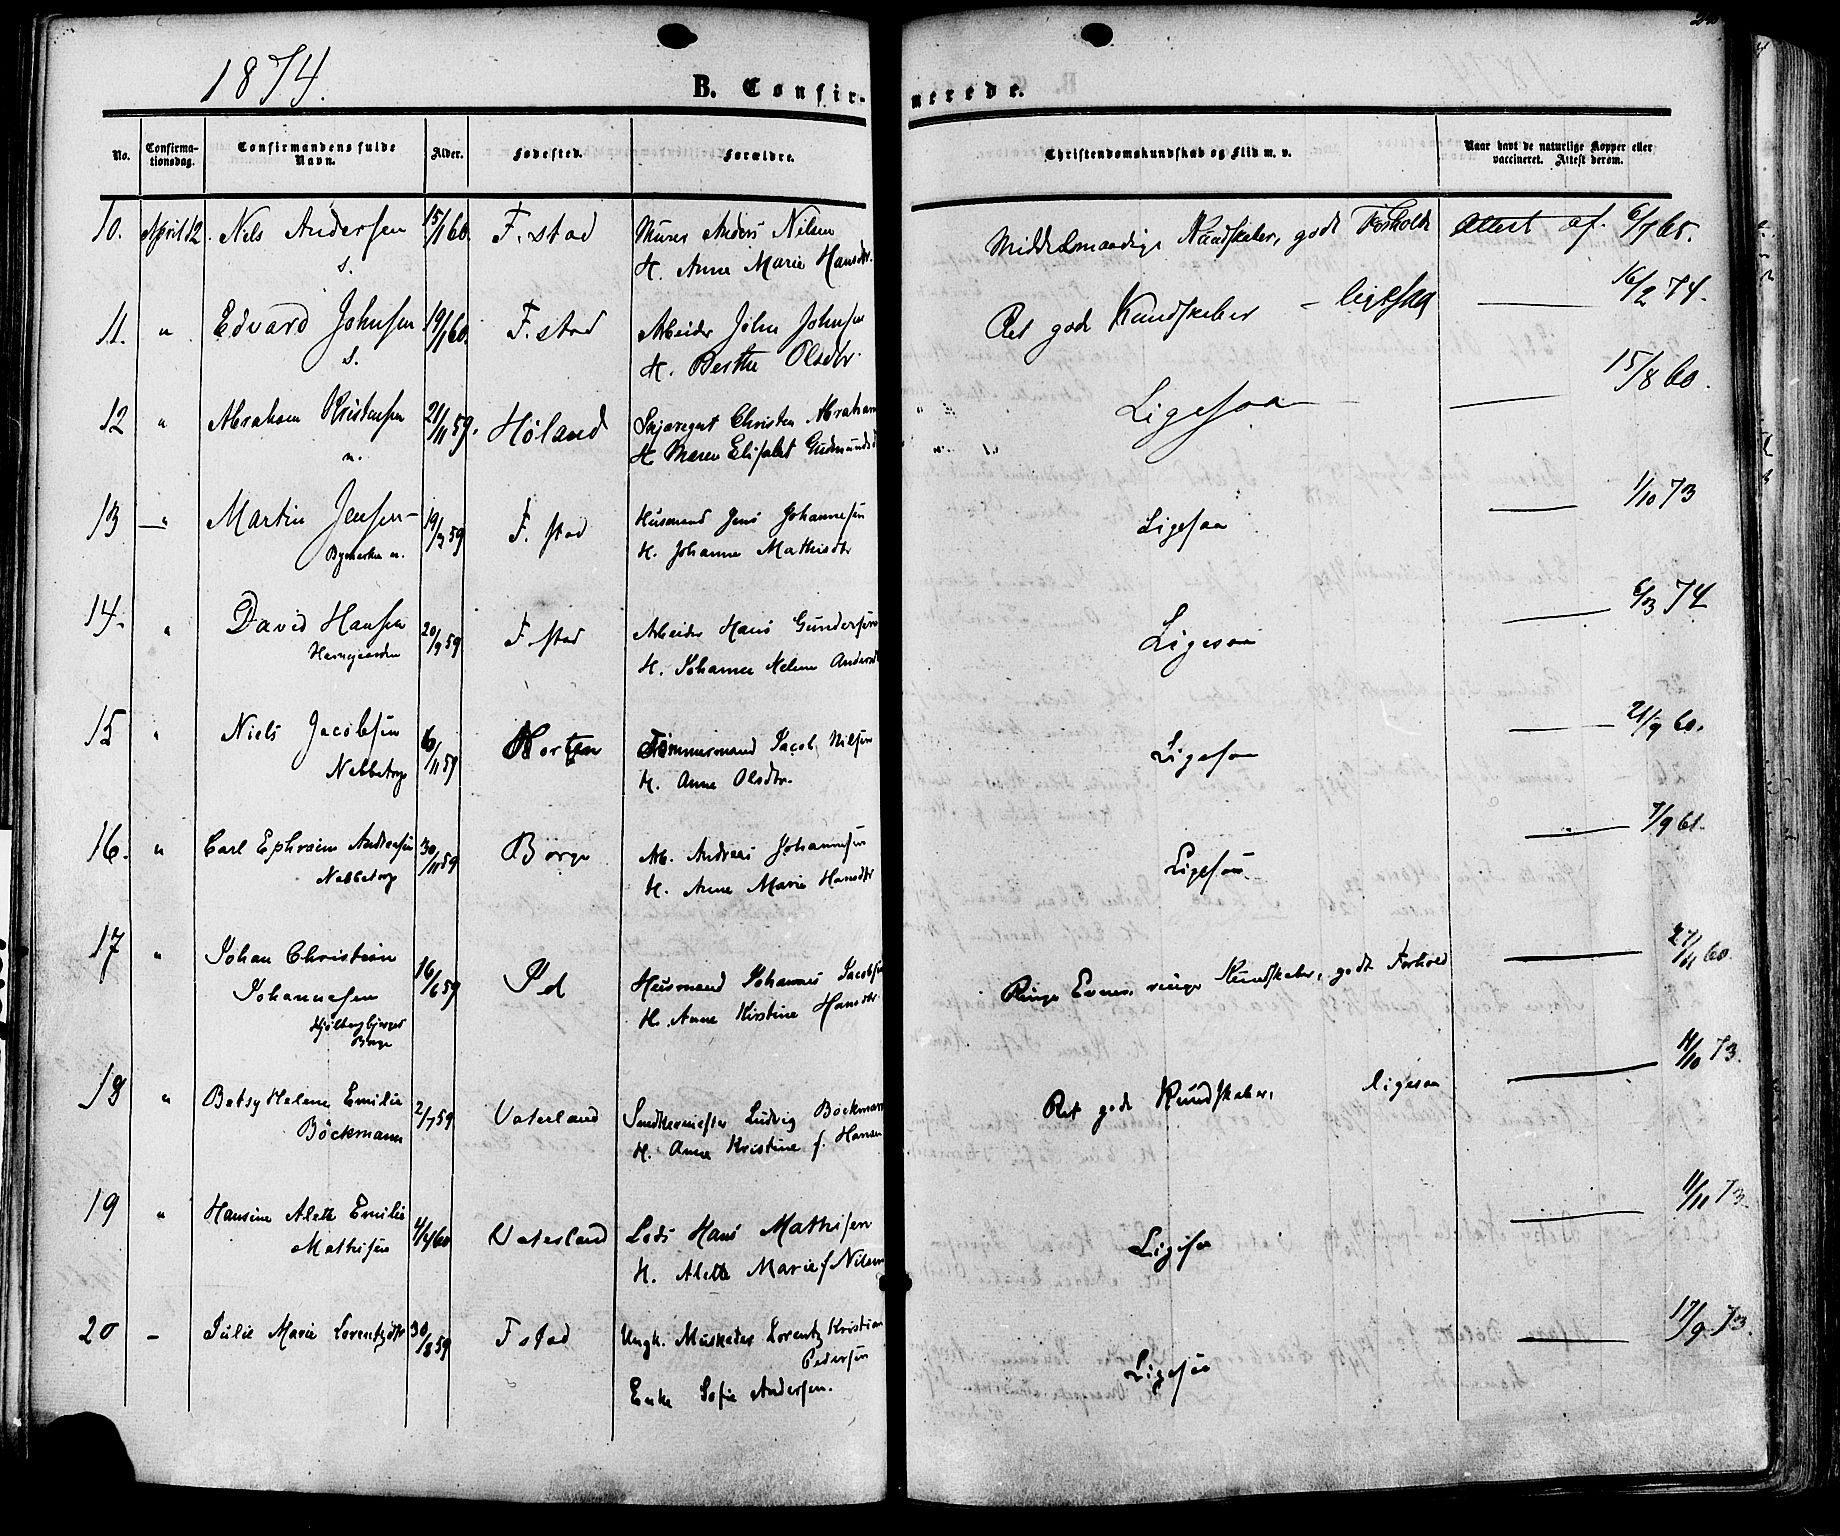 1874.
B. Confirmerede.
No.
Confirma-
tionsdag.
Confirmandens fulde
Navn.
Alder.
Fødested.
Forældre.
Christendomskundskab og Flid m. v.
Naar havt de naturlige Kopper eller
vaccineret. Attest derom.
10. April 12. Niels Andersen 15/1 60. F.stad Murer Anders Nilsen Middelmaadige Kundskaber, godt Forhold Attest af. 6/7 65.
s. H. Anne Marie Hansdtr.
11. " Edvard Johnsen 19/1 60. F.stad Arbeider John Johnsen Ret gode Kundskaber – ligesaa — 16/2 74.
s. H. Berthe Olsdtr.
12 " Abraham Kristensen 21/11 59. Høland Christen Abraham Ligesaa — 15/8 60.
n. H. Maren Elisabet Gudmundsd
13 — " Martin Jensen 19/3 59 F.stad Husmand Jens Johannesen Ligesaa — 1/10 73
Bymarken n. H. Johanne Mathisdtr
14. " David Hansen 20/9 59 F.stad Arbeider Hans Gundersen Ligesaa — 6/3 74
H. Johanne Helene Andersd
15 " Niels Jacobsen 6/11 59 Horten Tømmermand Jacob Nilsen Ligesaa — 21/9 60.
Nabbetorp H. Anne Olsdtr.
16. " Carl Ephraim Andreasen 30/11 59 Borge Arb. Andreas Johannesen Ligesaa — 7/9 61.
Nabbetorp H. Anne Marie Hansdtr
17 " Johan Christian 16/6 59 Id Husmand Johannes Jacobsen Ringe Evner, ringe Kundskaber, godt Forhold — 27/11 60.
Johannesen H. Anne Kirstine Hansdtr
Borge
18 " Betsy Helene Emilie 2/7 59 Vaterland Snedkermester Ludvig Böckmann Ret gode Kundskaber, ligesaa — 14/10 73.
Böckmann H. Anne Kristine f. Hansen
19 " Hansine Alette Emilie 4/4 60 Vaterland Lods Hans Mathisen Ligesaa — 11/11 73.
Mathisen H. Alette Marie f Nilsen
20 – Julie Marie Lorentzdtr 30/8 59 F.stad Ungk. Musketer Lorentz Kristian Ligesaa — 17/9 73.
Pedersen
Enke Sofie Andersen.